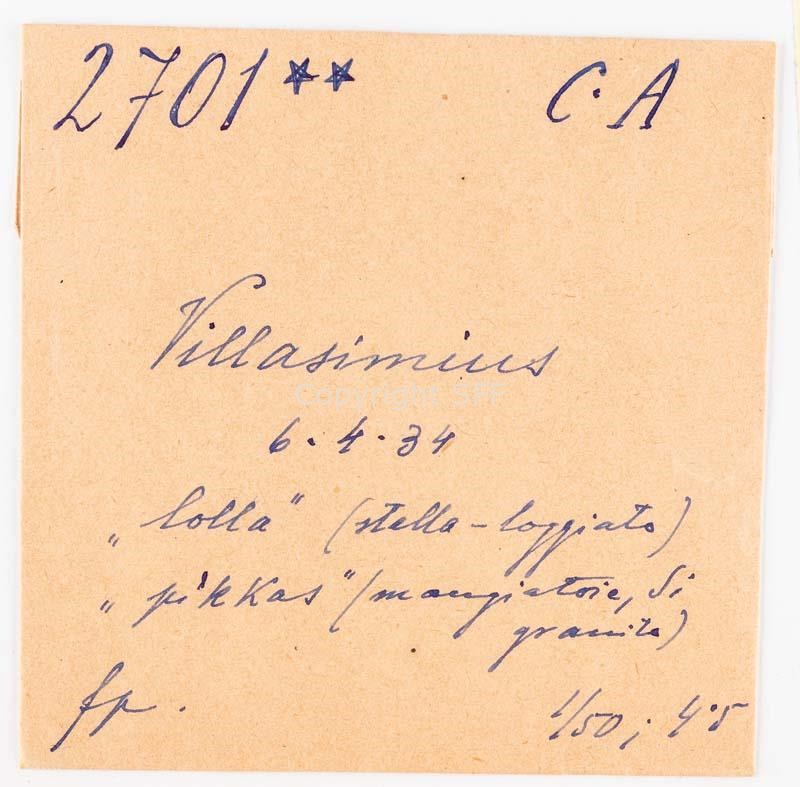 2701** C.A
Villasimius
Copyright SFF
6.4.34
„lolla" (stalla-loggiato)
„pikkas" (mangiatoie, di
granito)
fp. 1/50; 4.5